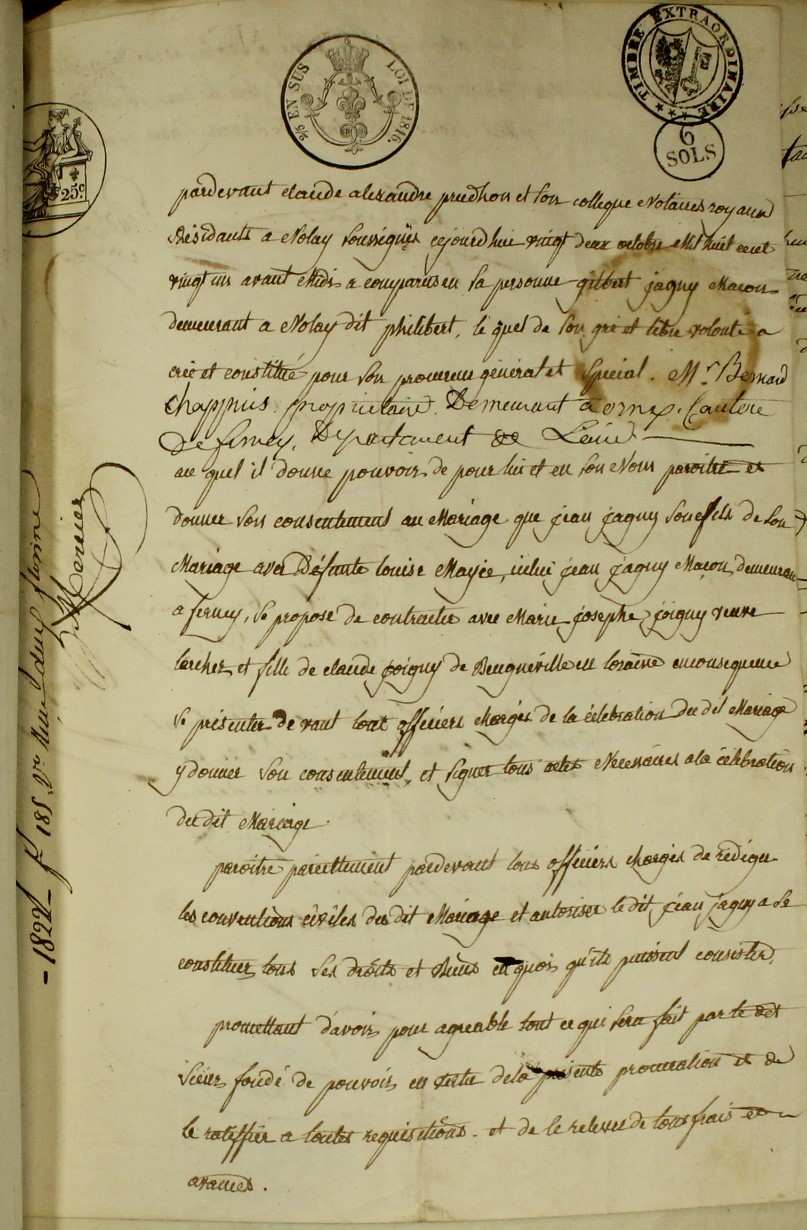 2/5 EN SUS LOI DE 1816.
TIMBRE EXTRAORDINAIRE
6
SOLS
25c
pardevant claude alexandre prudhon et son collegue Notaires royaux
Résidants a Nolay soussignés cejourdhui vingt deux octobre Mil huit cent
vingt un avant Midi a comparu en sa personne gilbert jagny Macon
demeurant a Nolay dit philibert, le quel de son gré et libre volonté a
créé et constitué pour son procureur général et spécial. Mr Bernard
Chappuis, propriétaire, Demeurant à ornex, Canton
De ferney, Département de L'ain
au quel il donne pouvoir de pour lui et en son Nom paroitre et
donner son consentement au Mariage que jean jagny son fils de son
Mariage avec Défunte louise Mayée, icelui jean jagny Maçon, demeurant
a ferney, se propose de contracter avec Marie josephe joigny veuve
larcher et fille de claude joigny de Beugneville en loraine en consequence
se présenter devant tout officiers chargés de la célébration du dit Mariage
y donner son consentement, et signer tous actes Necessaires a la célébration
du dit Mariage.
paroitre pareillement pardevant tous officiers chargés de rédiger
les conventions civiles du dit Mariage et autoriser le dit jean jagny a se
constituer tous ses droits et Biens en quoi qu'ils puissent consister,
promettant d'avoir pour agreable tout ce qui sera fait par le dit
sieur fondé de pouvoir en vertu de la presente procuration et de
le ratiffier a toutes requisitions. et de le relever de tous frais et
avances.
1822 fo 185 Vo deux florins
Mercier